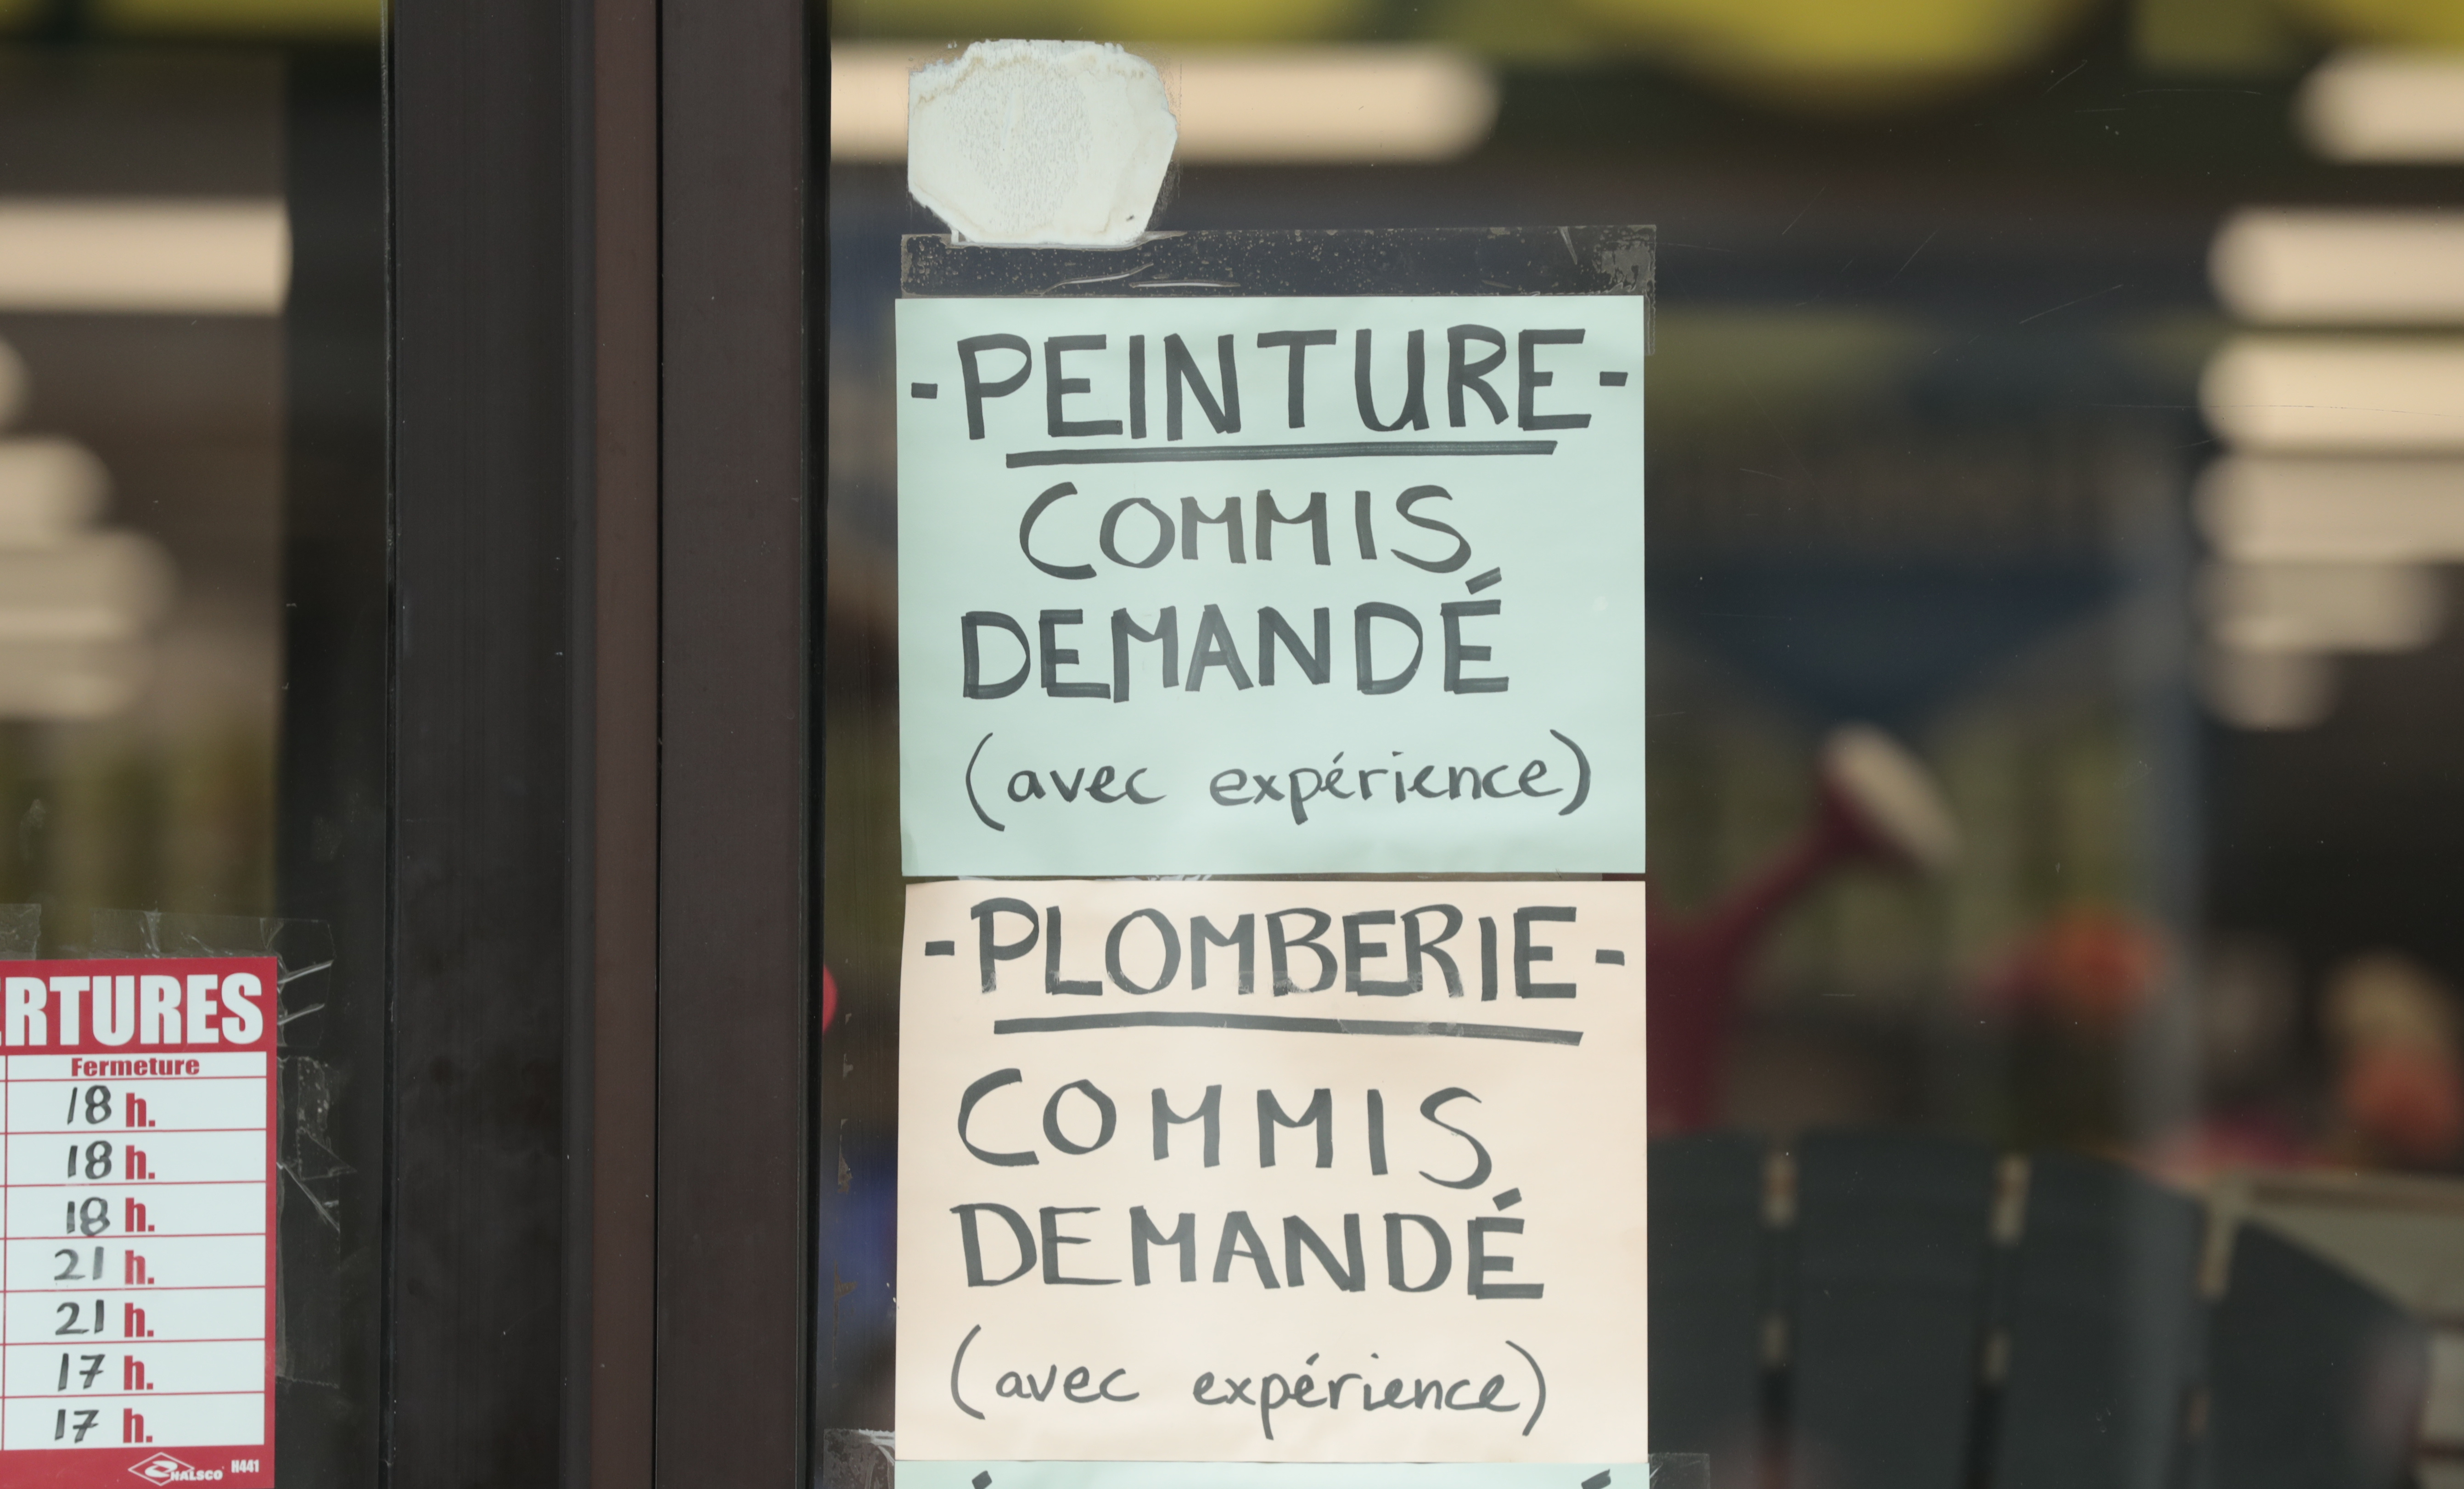 -PEINTURE-
COMMIS
DEMANDÉ
(avec expérience)
-PLOMBERIE-
COMMIS
DEMANDÉ
(avec expérience)
ERTURES
Fermeture
18 h.
18 h.
18 h.
21 h.
21 h.
17 h.
17 h.
HALSCO H441